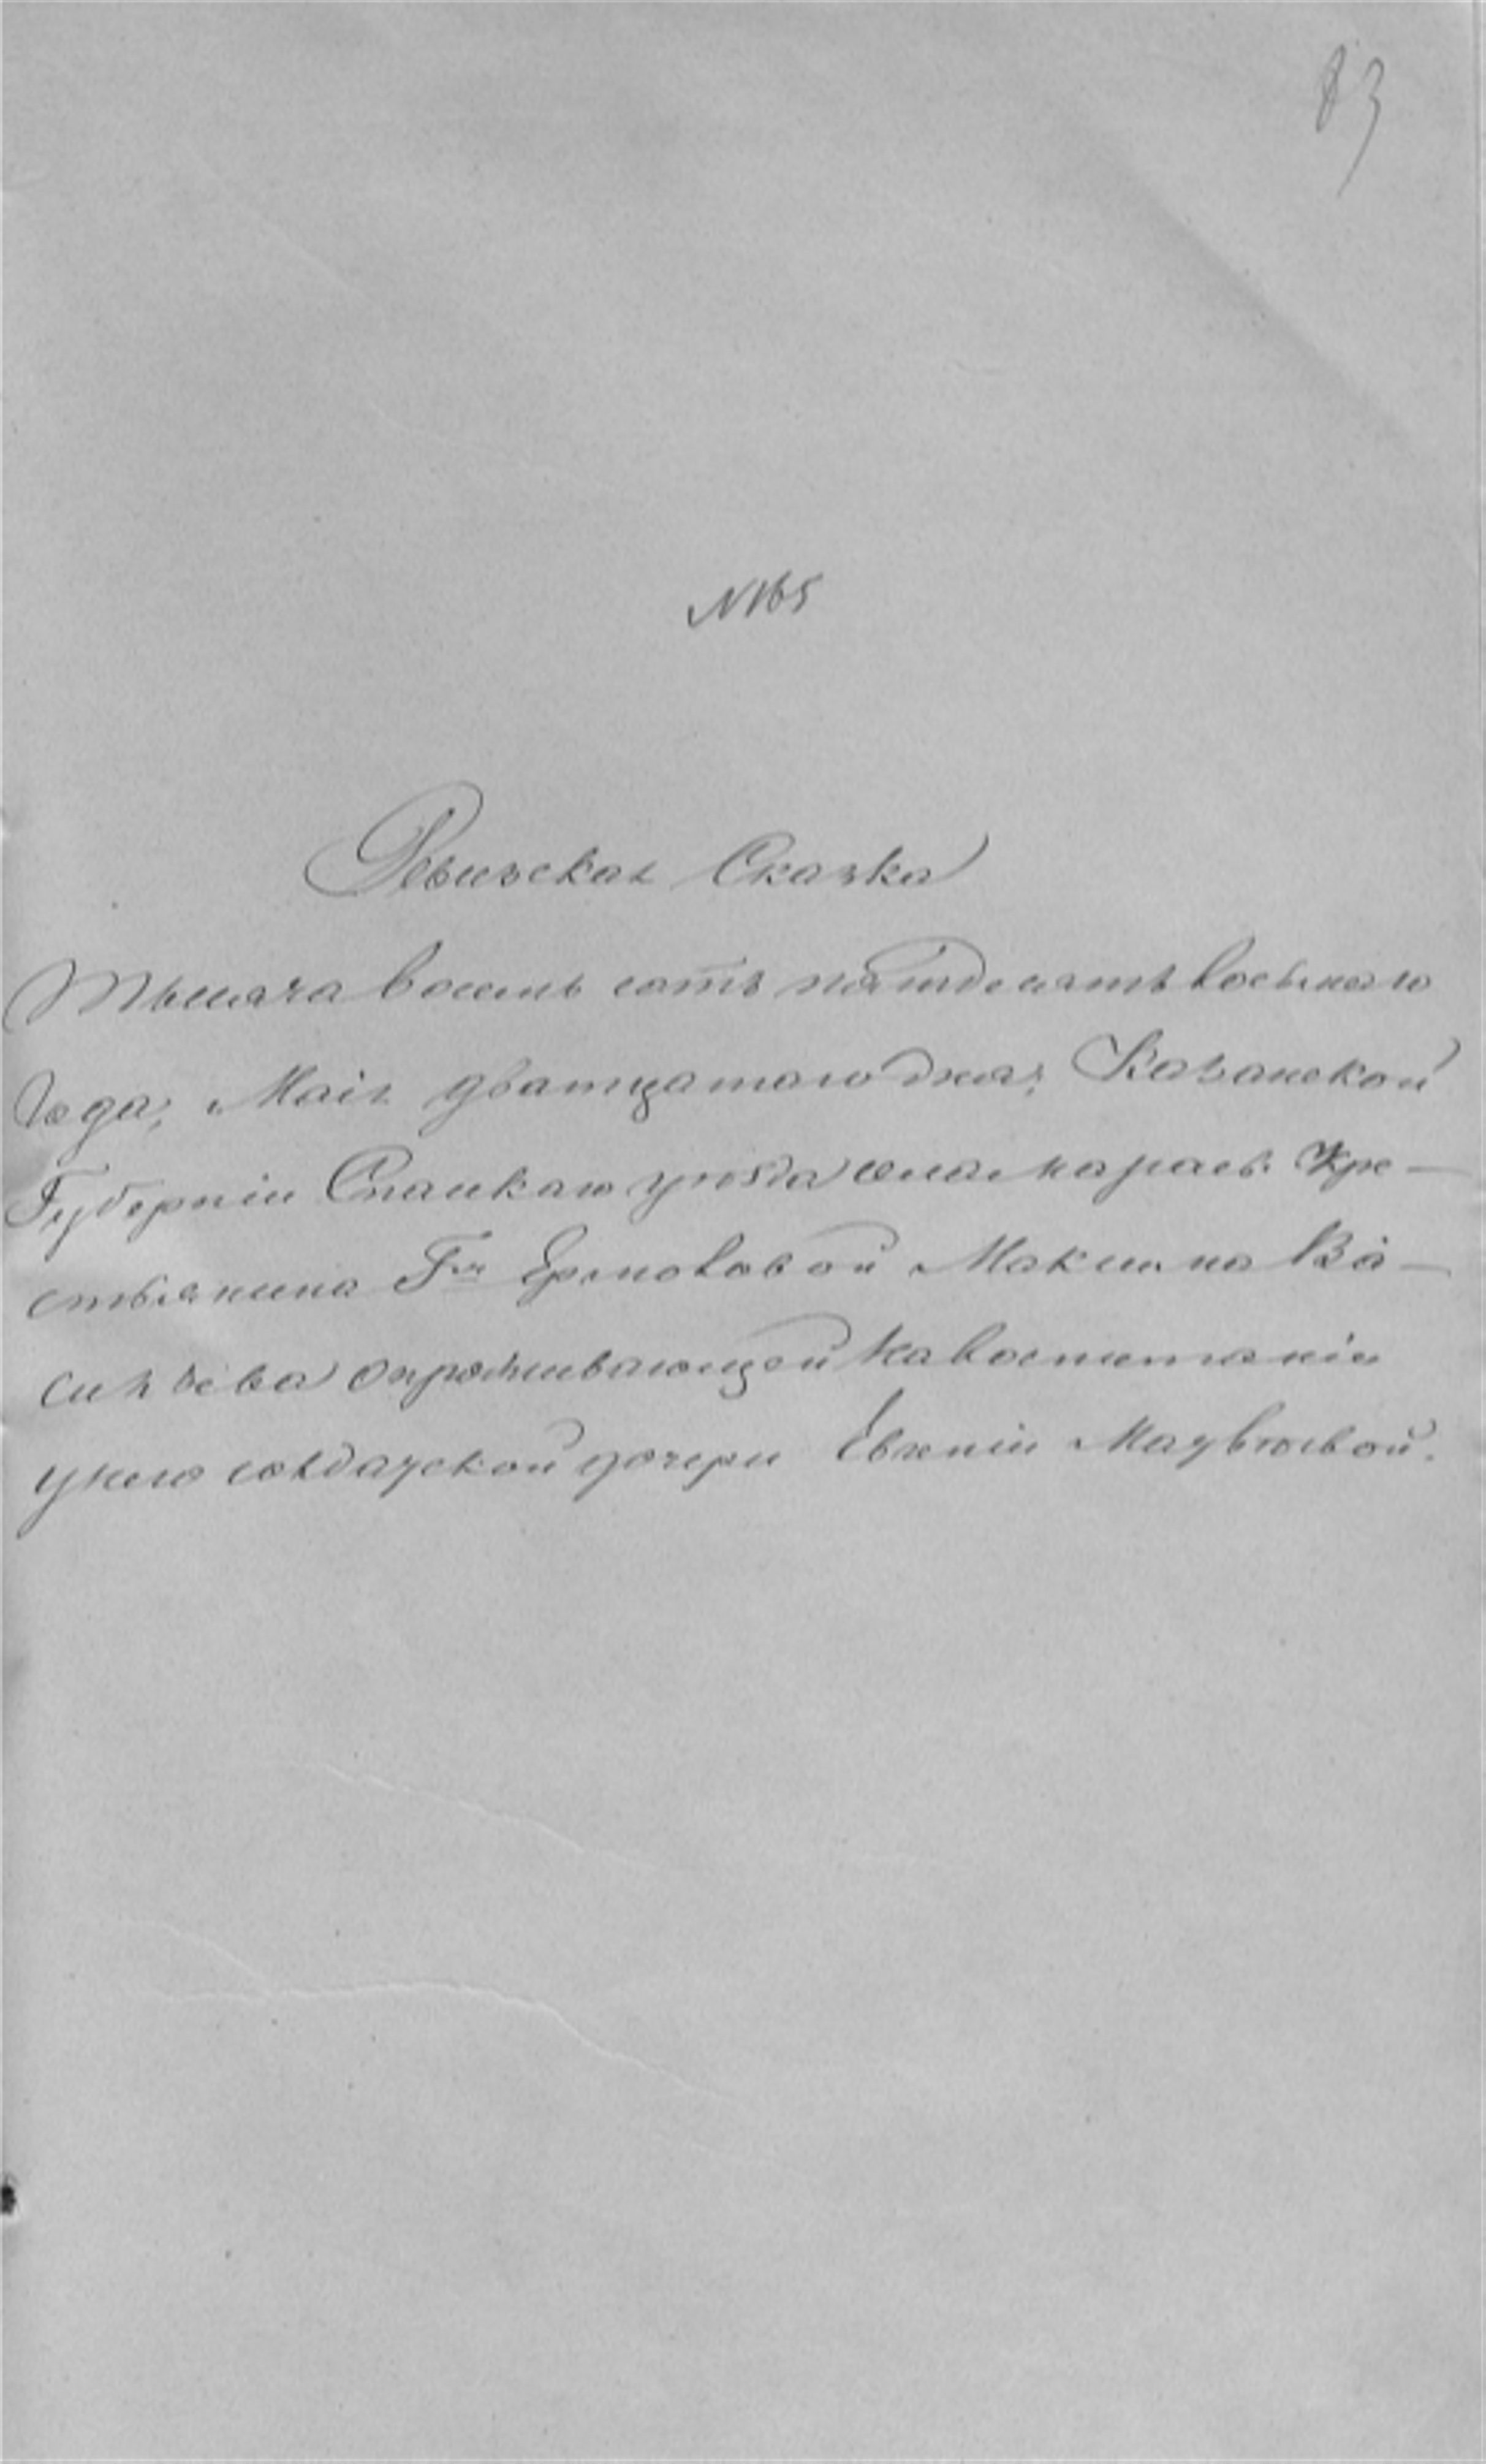 83
N165
Ревизская Сказка
Тысяча восемь сотъ пятдесятъ восьмаго
Года, Маія дватцатого дня; Казанской
Губерніи Спаскаго уѣзда села Кре-
стьянина Г-жи Ермоловой Максима Ва-
сильева о проживающей на воспитаніи
у него солдатской дочери Евгеніи